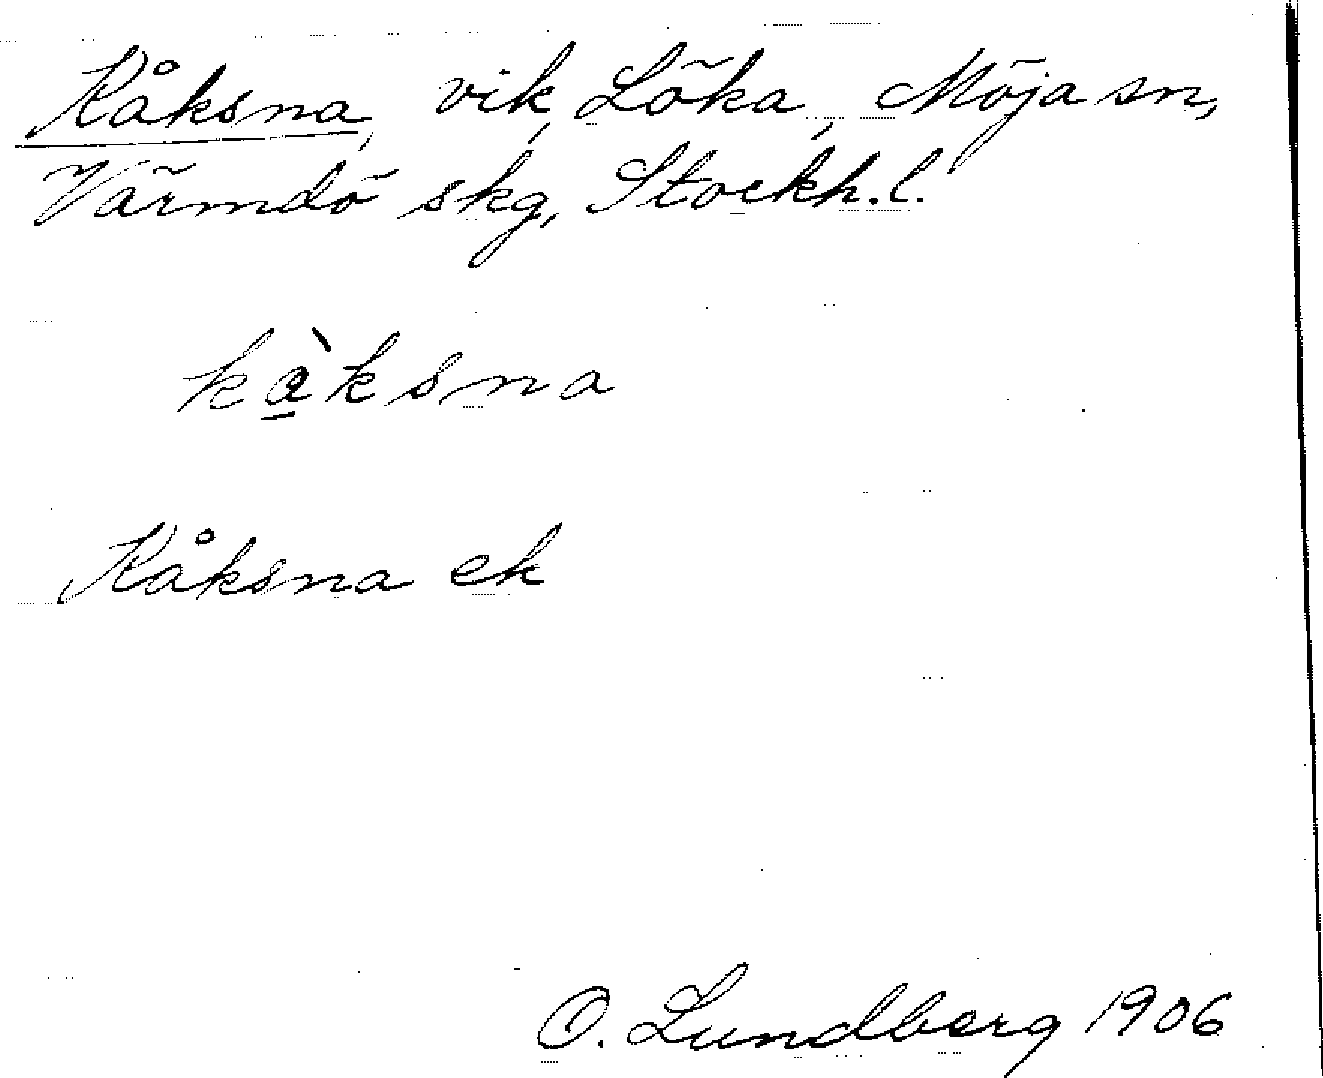 Kåksna, vik, Löka, Möja sn,
Värmdö skg, Stockh. l.
kàksna
Kåksna ek
O. Lundberg 1906